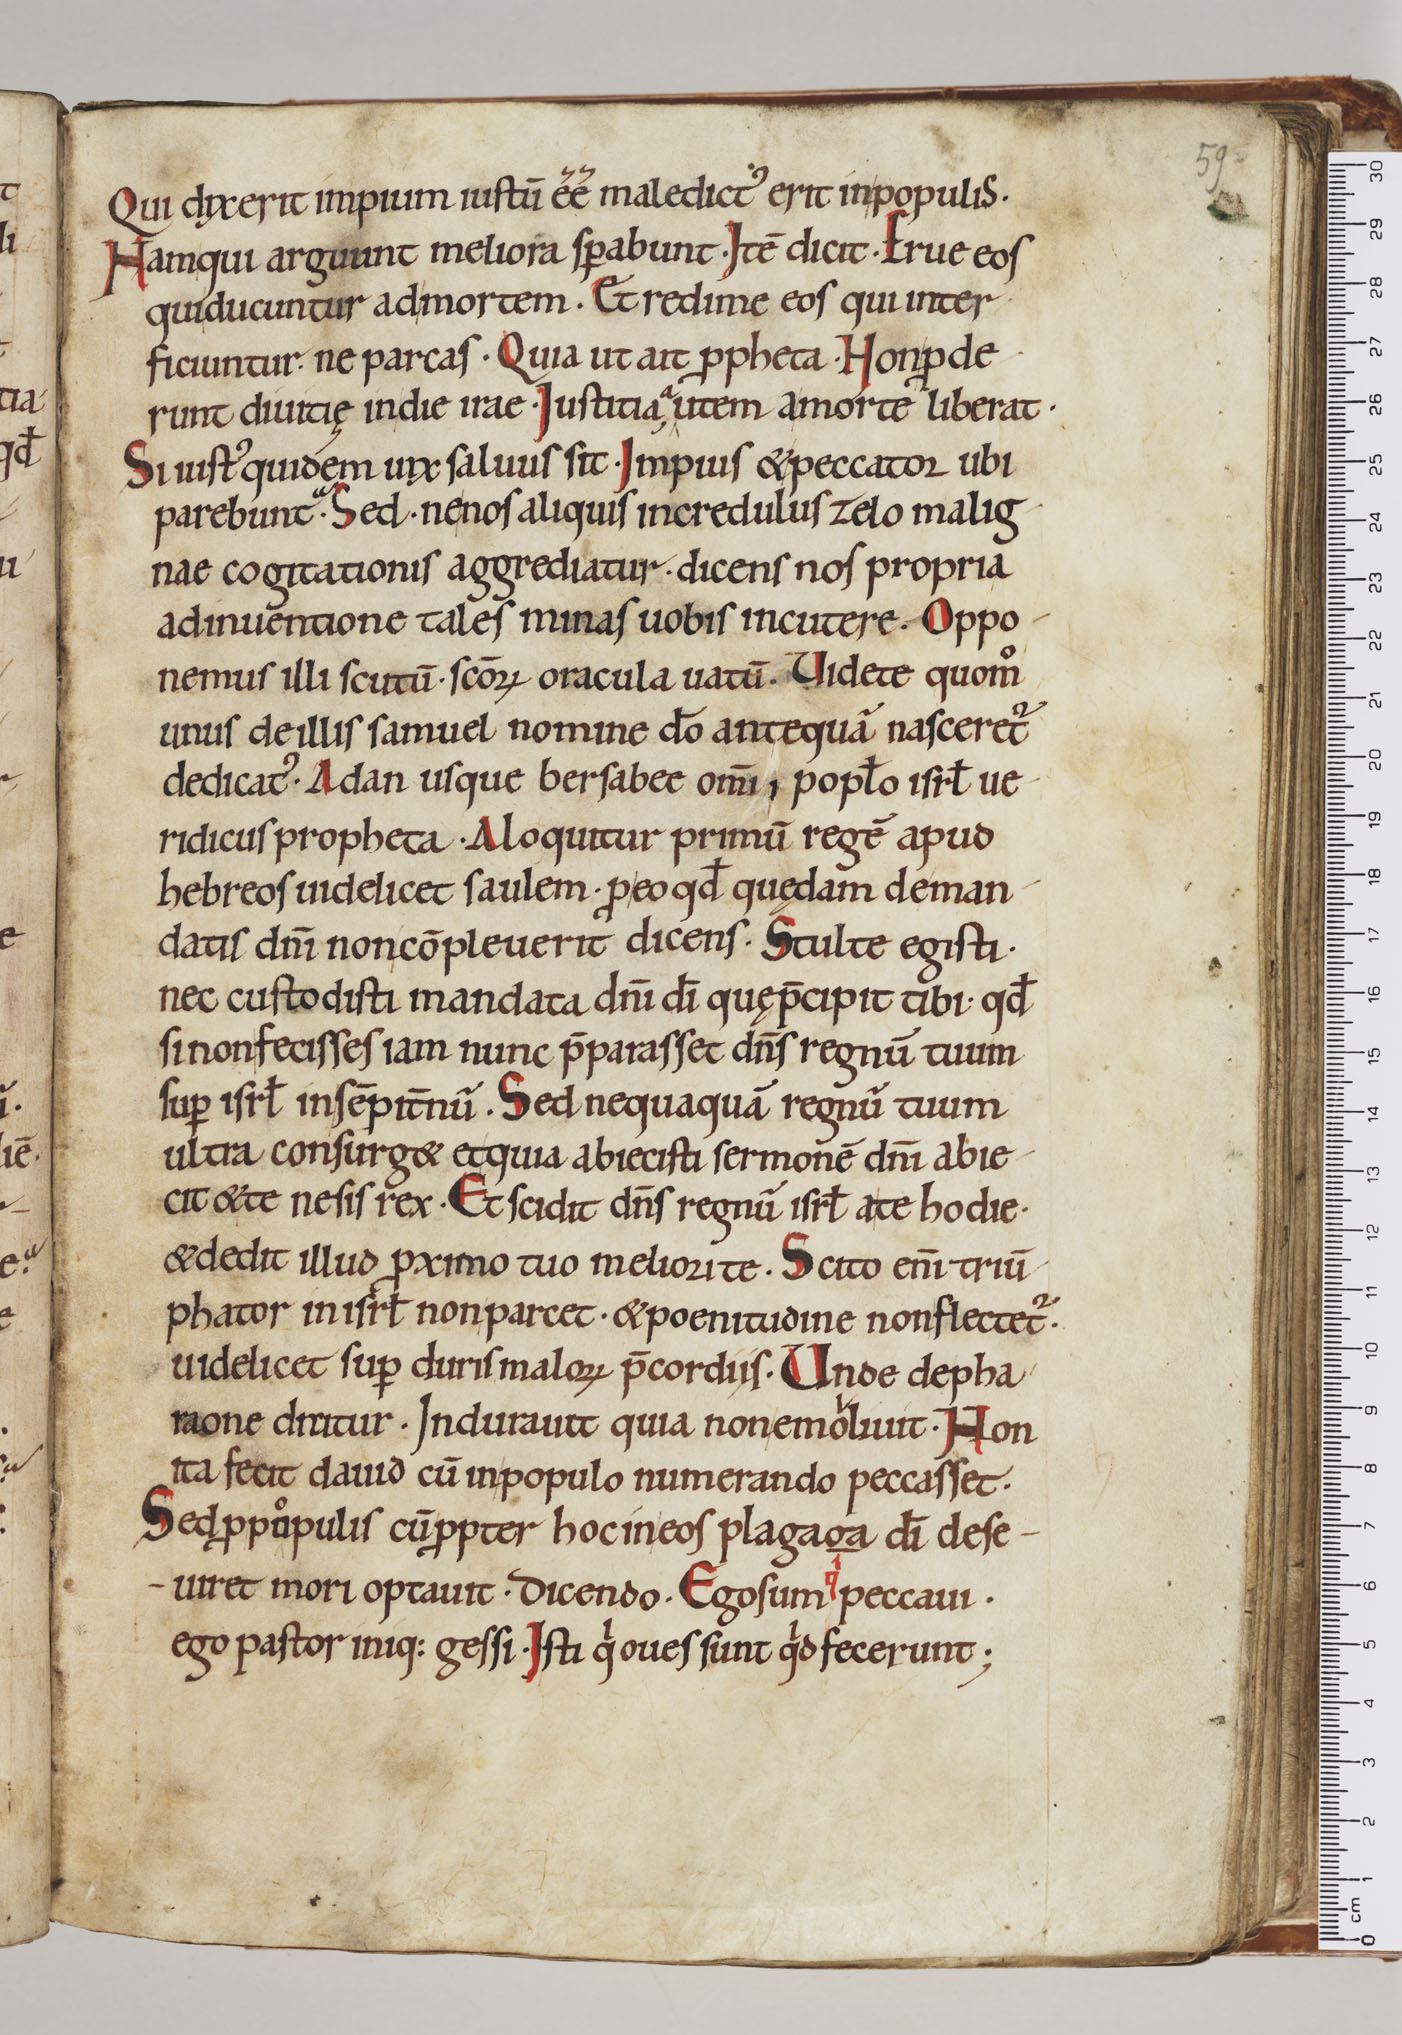 59
Qui dixerit impium iustū éé maledictꝰ erit inpopulis.
Namqui arguunt meliora sꝑabunt. Itē dicit. Erue eos
quiducuntur admortem. Et redime eos qui inter
ficiuntur. ne parcas. Quia ut ait ꝓpheta. Nonꝓde
runt diuitię indie irae. Iustitia autem amorte liberat.
Si iustꝰ quidem uix saluus sit. Impius & peccator ubi
parebunt. Sed. nenos aliquis incredulus zelo malig
nae cogitationis aggrediatur. dicens nos propria
adinuentione tales minas uobis incutere. Oppo
nemus illi scutū. scōꝝ oracula uatū. Uidete quom̊
unus deillis samuel nomine dō antequā nasceret᷑
dedicatꝰ. Adan usque bersabee om̄i, popl̄o isrl̄ ue
ridicus propheta. Aloquitur primū regē apud
hebreos uidelicet saulem. ꝓeo qd̄ quędam deman
datis dn̄i noncōpleuerit dicens. Stulte egisti.
nec custodisti mandata dn̄i dī quę p̄cipit tibi. qd̄
sinonfecisses iam nunc p̄parasset dn̄s regnū tuum
suꝑ isrl̄ insēpit̄nū. Sed nequaquā regnū tuum
ultra consurg& etquia abiecisti sermonē dn̄i abie
cit & te nesis rex. Et scidit dn̄s regnū isrl̄ ate hodie.
& dedit illud ꝓximo tuo meliori te. Scito enī triū
phator in isrl̄ nonparcet. & poenitudine nonflectet᷑.
uidelicet suꝑ duris maloꝝ p̄cordiis. Unde depha
raone dicitur. Indurauit quia nonemolliuit. Non
ita fecit dauid cū inpopulo numerando peccasset.
Sed ꝓpopulis cū ꝓpter hoc ineos plagaga dī dese
uiret mori optauit. Dicendo. Egosum qi peccaui.
ego pastor iniq: gessi. Isti qͥ oues sunt qͥd fecerunt;